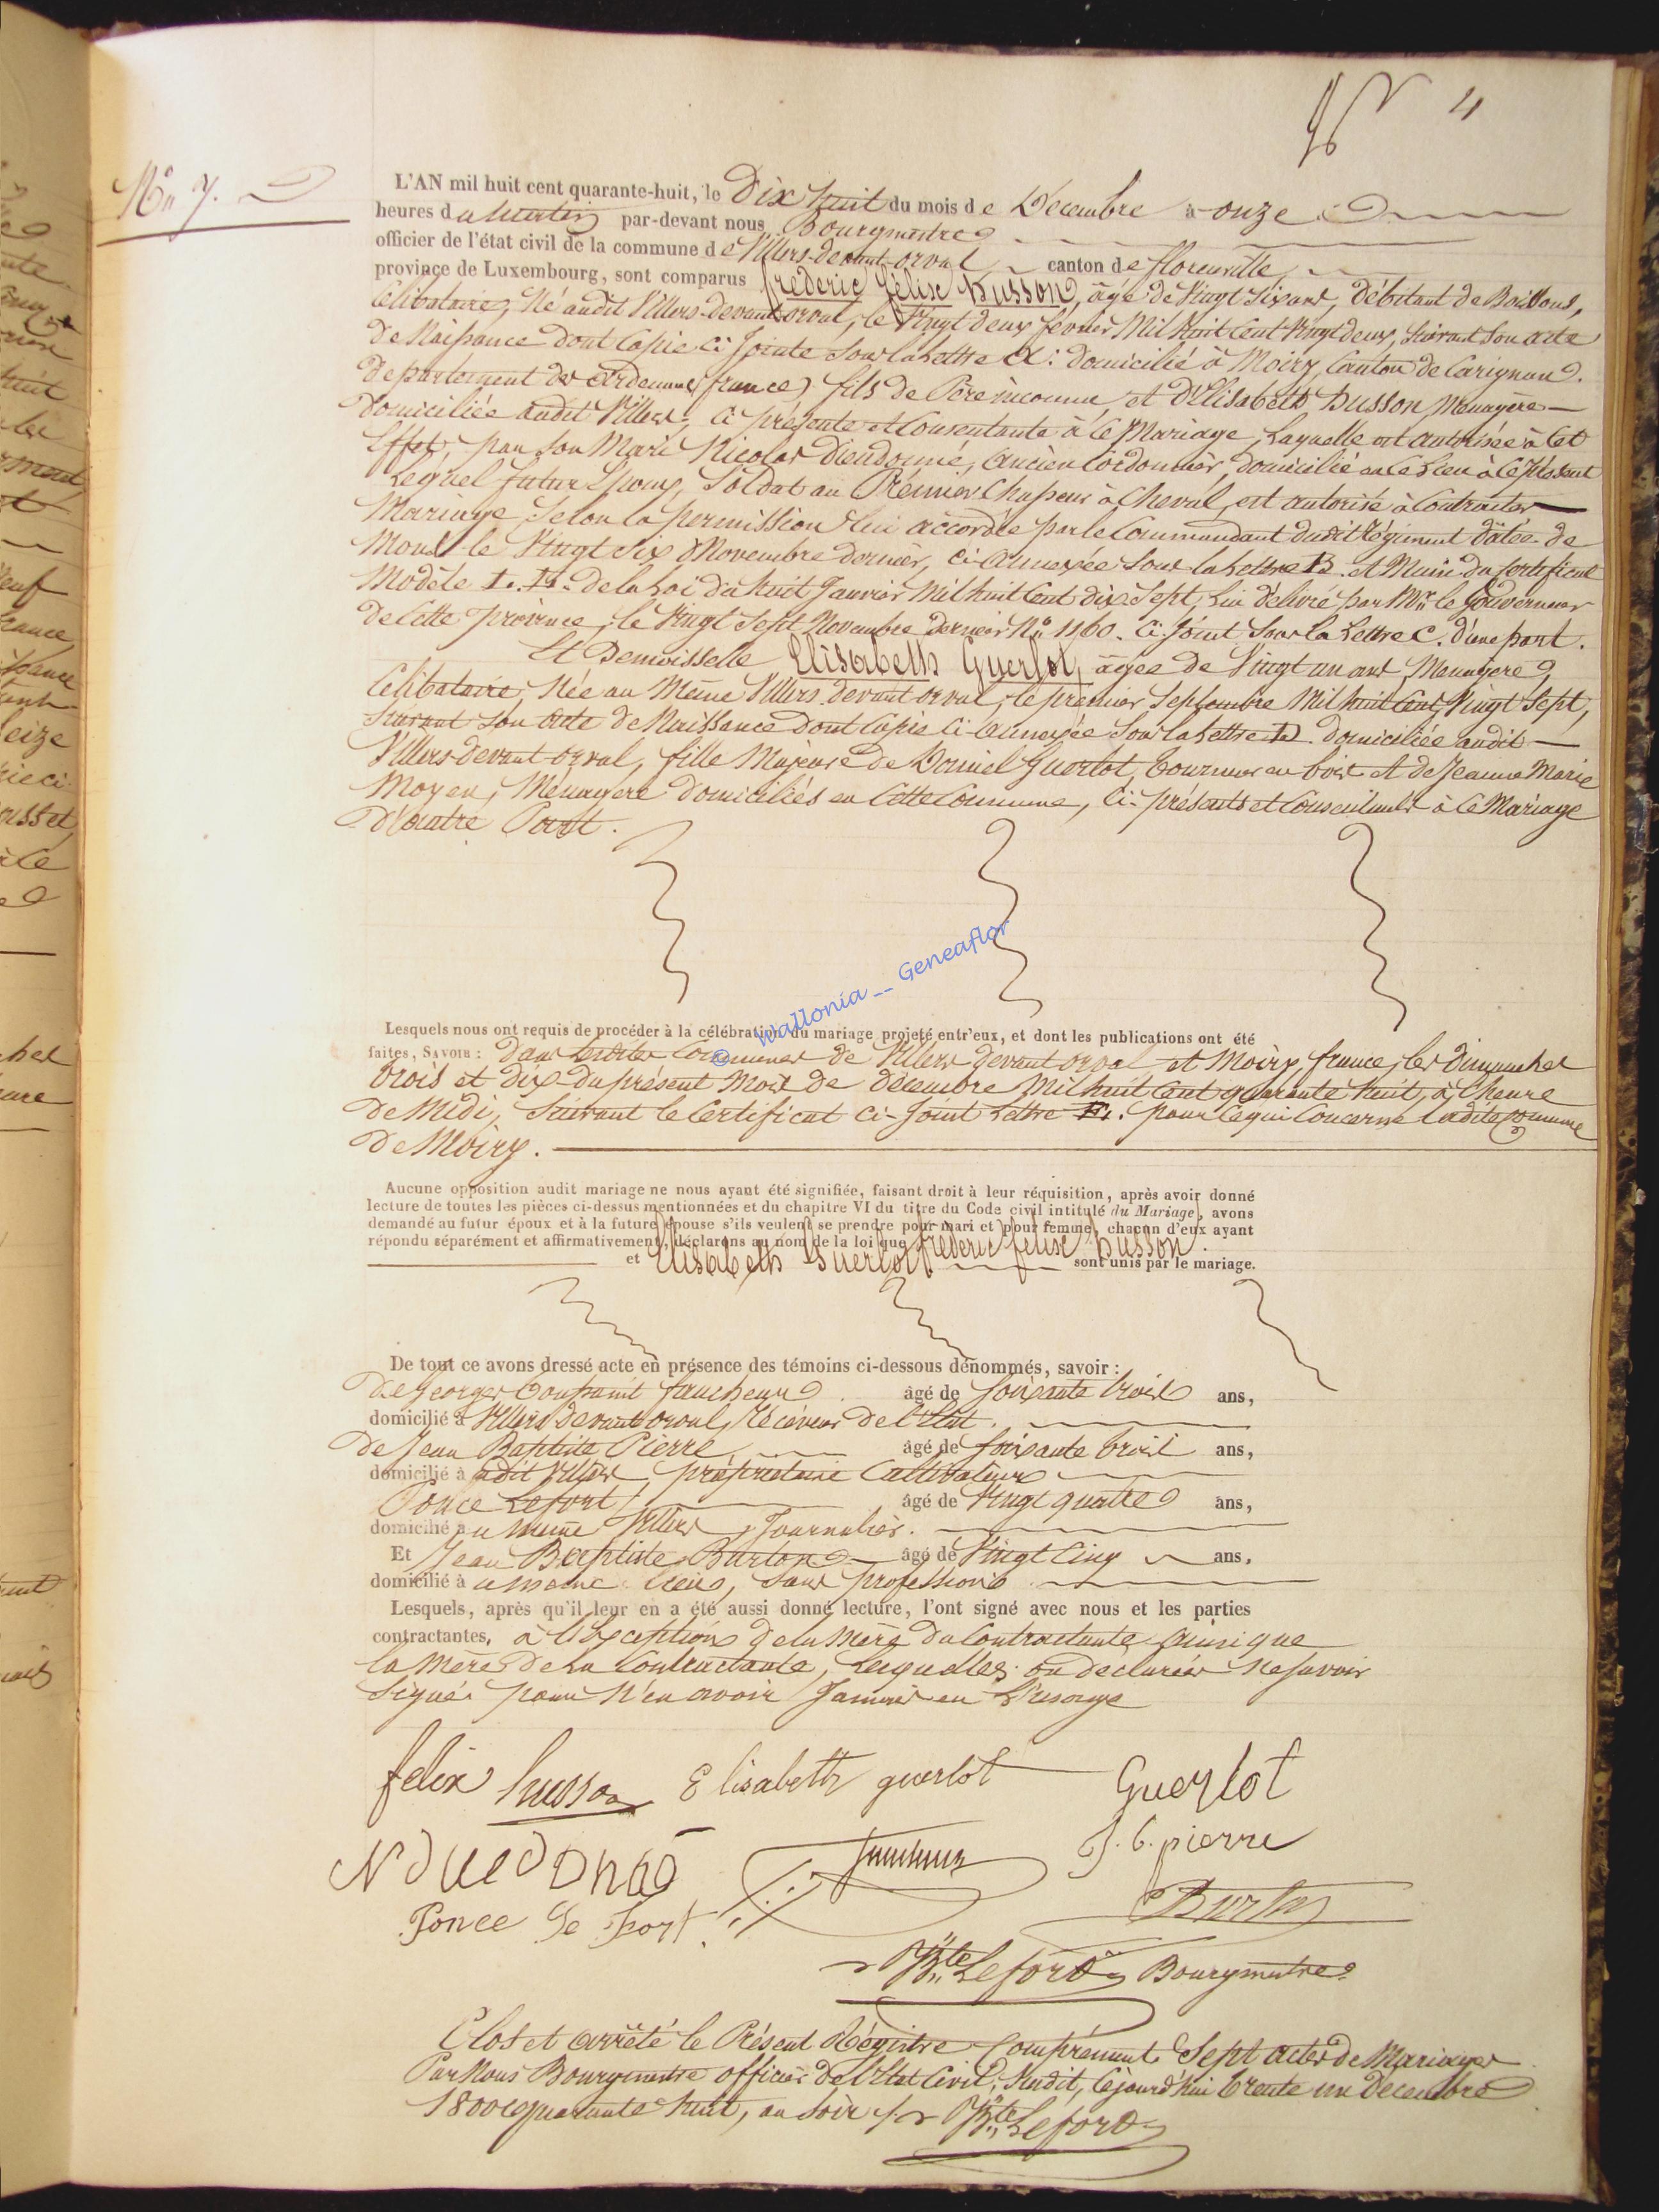 4
No 7.
L'AN mil huit cent quarante-huit, le Dix huit du mois de Décembre à onze
heures du matin par-devant nous Bourgmestre
officier de l'état civil de la commune de Villers-devant-orval, canton de florenville,
province de Luxembourg, sont comparus frédéric félix husson, âgé de Vingt six ans, débitant de Boissons,
Célibataire, Né audit Villers-devant orval, le Vingt deux février Mil huit Cent Vingt deux, suivant son acte
de Naissance dont Copie Ci Jointe Sous la Lettre A: domicilié à Moiry, Canton de Carignan.
departement des Ardennes (france) fils de Père inconnu et d'Elisabeth Husson Menagère —
domiciliée audit Villers, Ci présente et Consentante à Ce Mariage, Laquelle est autorisée à Cet
Effet, par Son Mari Nicolas Dieudonné, ancien Cordonnier, domicilié en Ce Lieu à Ce présent
Lequel futur Epoux, Soldat au Premier Chasseur à Cheval, est autorisé à Contracter
Mariage Selon la permission lui accordée par le Commandant dudit Régiment datée de
Mons le Vingt Six Novembre dernier, Ci-annexée Sous la Lettre B. et Muni du Certificat
Modèle de la Loi du huit Janvier Mil huit Cent dix Sept, Lui délivré par Mr. le Gouverneur
de Cette province, le Vingt Sept Novembre dernier No 1160. Ci Joint Sous la Lettre C. d'une part.
Et Demoisselle Elisabeth Guerlot, âgée de Vingt un ans Menagere,
Célibataire, Née au Même Villers devant orval, le premier Septembre Mil huit Cent Vingt Sept,
Suivant son Acte de Naissance dont Copie Ci-annexée Sous la Lettre D. domiciliée audit —
Villers-devant-orval, fille Majeure de Daniel Guerlot, tourneur en bois et de Jeanne Marie
Moyen, Ménagere domiciliés en Cette Commune, Ci-présents et Consentants à Ce Mariage
D'autre Part.
© Wallonia -- Geneaflor
Lesquels nous ont requis de procéder à la célébration du mariage projeté entr'eux, et dont les publications ont été
faites, SAVOIR : dans lesdites Communes de Villers devant orval et Moiry, france, les Dimanches
trois et dix du présent Mois de décembre Mil huit Cent quarante huit, à l'heure
de Midi, Suivant le Certificat Ci-Joint Lettre E. pour Ce qui Concerne ladite Commune
de Moiry.
Aucune opposition audit mariage ne nous ayant été signifiée, faisant droit à leur réquisition, après avoir donné
lecture de toutes les pièces ci-dessus mentionnées et du chapitre VI du titre du Code civil intitulé du Mariage, avons
demandé au futur époux et à la future épouse s'ils veulent se prendre pour mari et pour femme, chacun d'eux ayant
répondu séparément et affirmativement, déclarons au nom de la loi que frédéric félix husson
et Elisabeth Guerlot sont unis par le mariage.
De tout ce avons dressé acte en présence des témoins ci-dessous dénommés, savoir :
de George faucheur âgé de Soixante trois ans,
domicilié à Villers devant orval, Récéveur de l'Etat.
de Jean Baptiste Pierre âgé de Soixante trois ans,
domicilié à udit Villers, propriétaire Cultivateur
Ponce Lefort âgé de Vingt quatre ans,
domicilié à u meme Villers, Journalier.
Et Jean Baptiste Burton âgé de Vingt Cinq ans,
domicilié à u meme Lieu, Sans profession
Lesquels, après qu'il leur en a été aussi donné lecture, l'ont signé avec nous et les parties
contractantes, à l'Exception de la Mère du Contractante ainsi que
la Mère de la Contractante, Lesquelles on déclarées ne Savoir
Signé pour n'en avoir Jamais eu L'usage
felix husson Elisabeth guerlot Guerlot
N Duedoné faucheur J. b. pierre
Ponce Le fort. Burton
Bte Lefort Bourgmestre
Clos et arrêté le Présent Régistre Comprenant Sept actes de Mariages
Par Nous Bourgmestre officier de l'Etat Civil, Susdit, Cejourd'hui trente un Decembre
1800 quarante huit, au Soir Bte Lefort